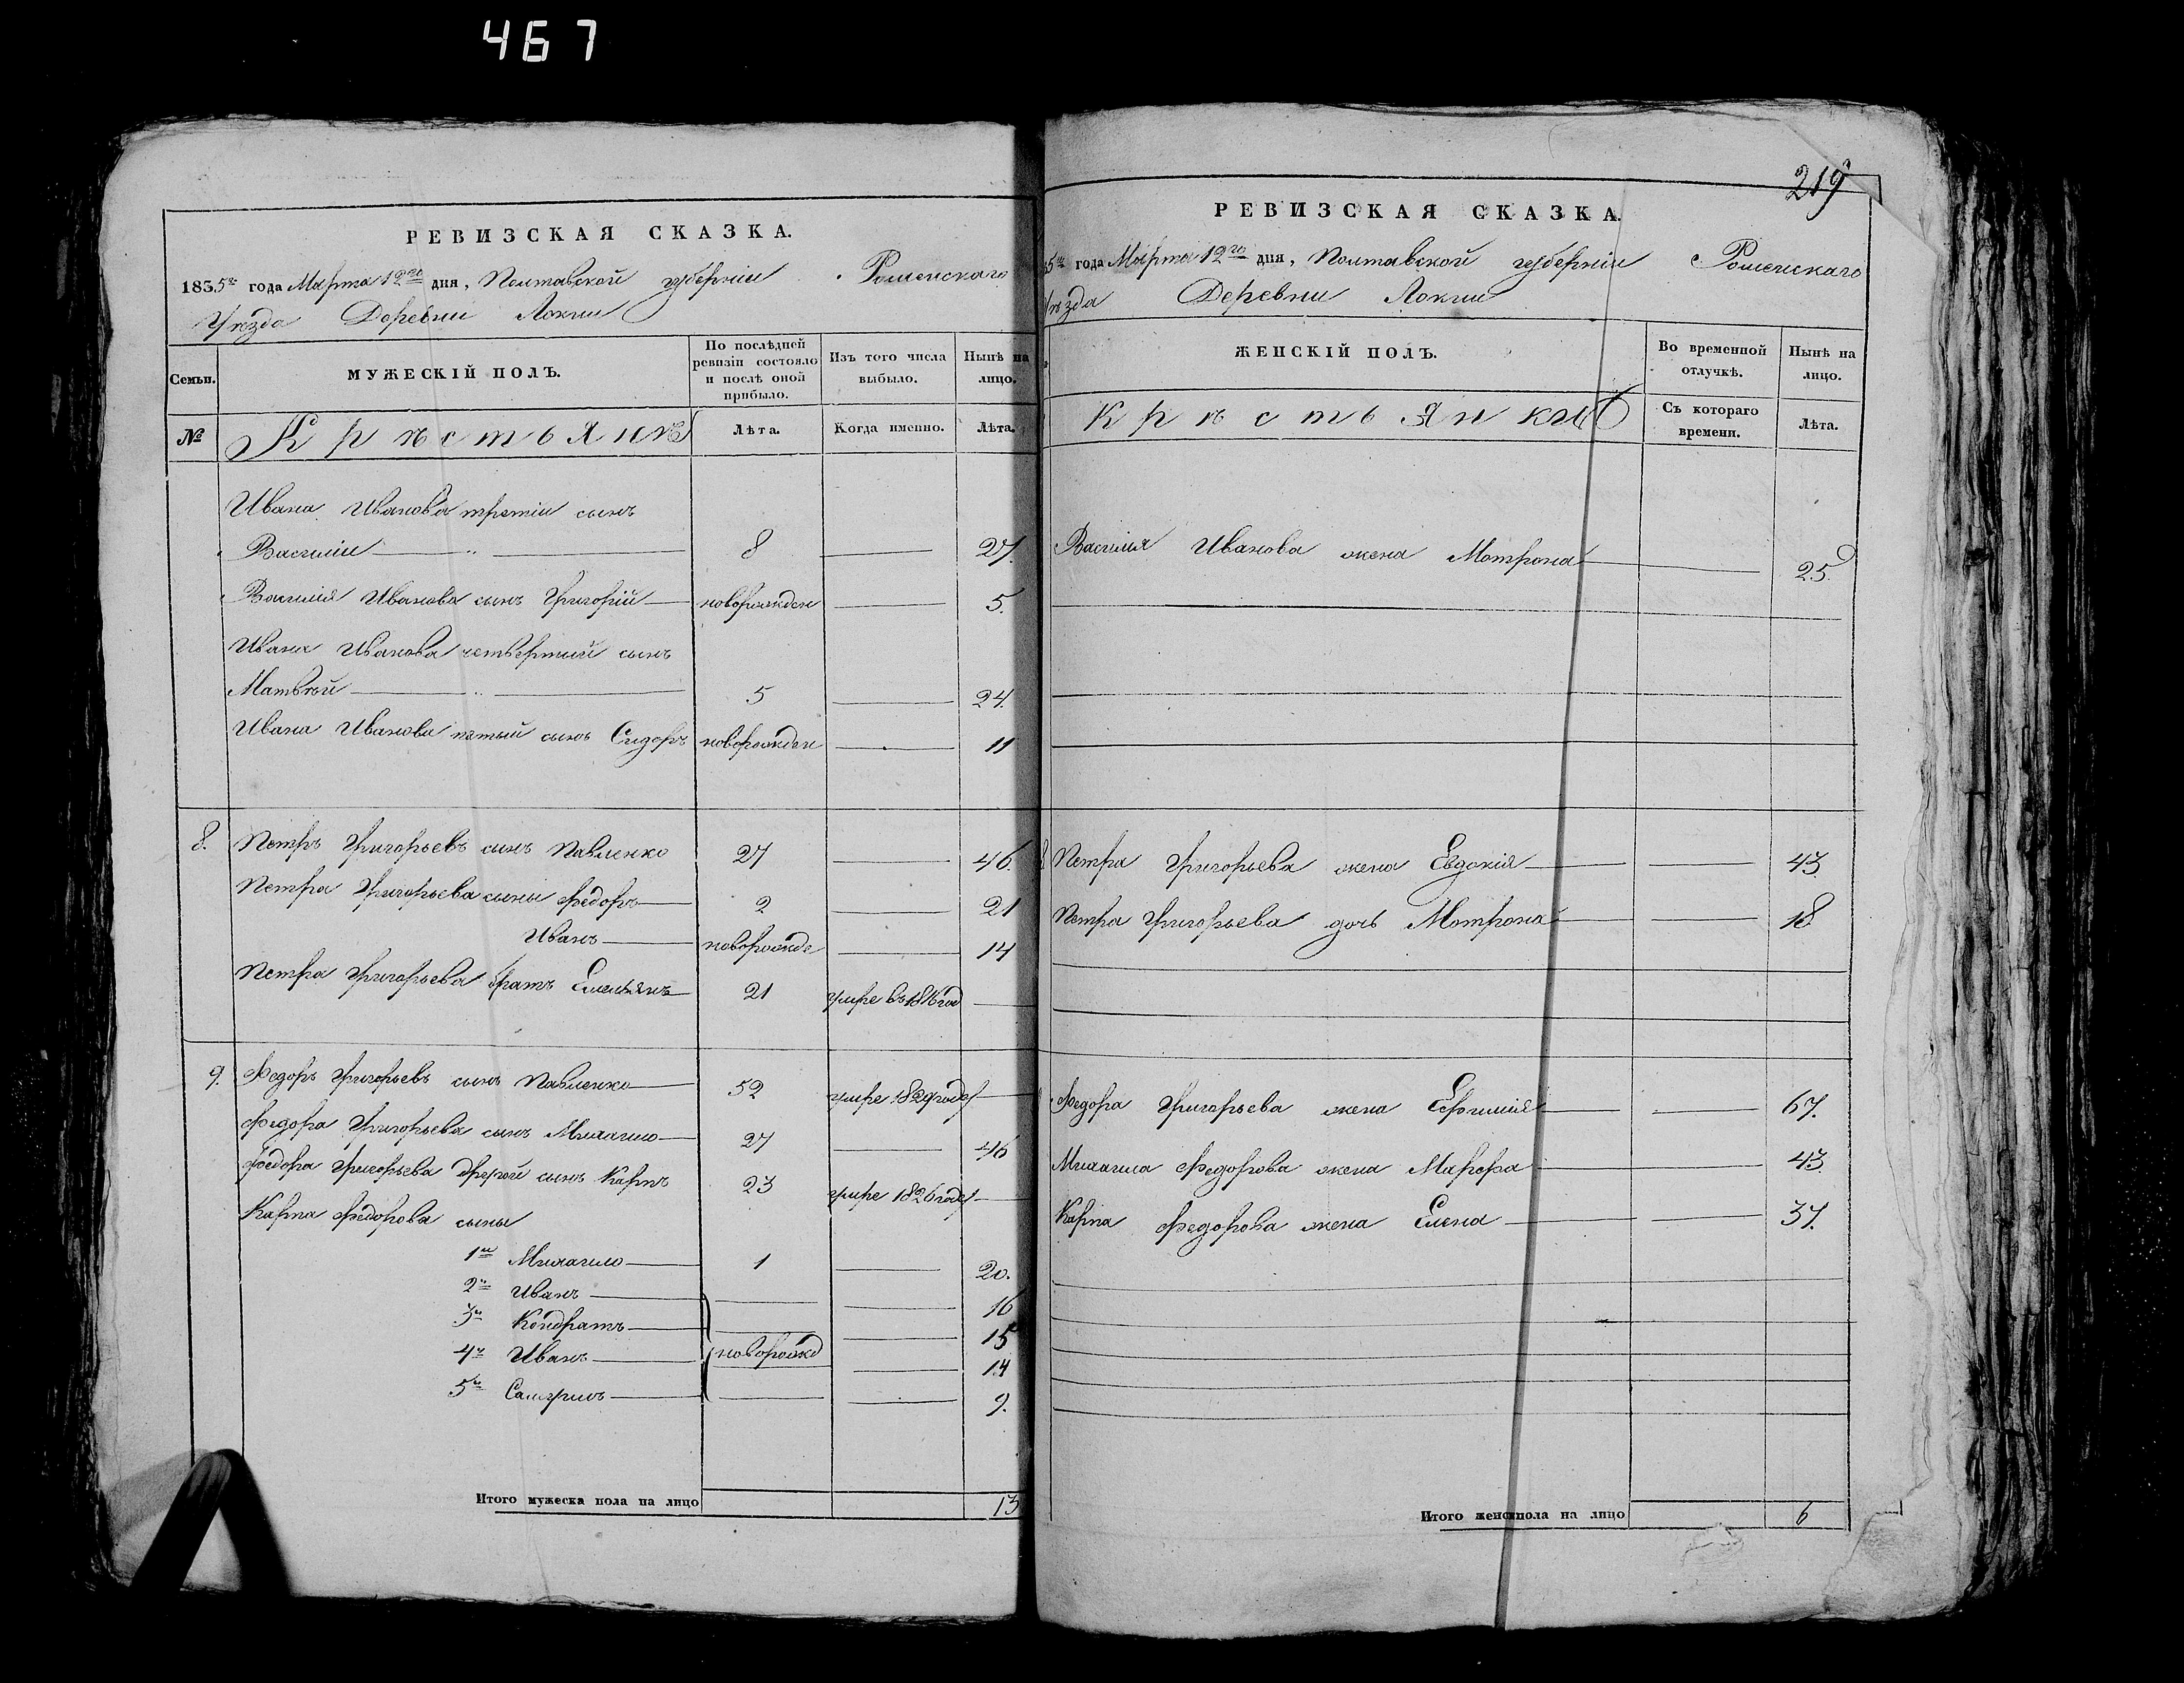 467
РЕВИЗСКАЯ СКАЗКА.
1835го года Марта 12го дня, Полтавской губернiи Роменскаго
Уѣзда Деревни Локни
Семьи.
МУЖЕСКIЙ ПОЛЪ.
По послѣдней ревизiи состояло и послѣ оной прибыло.
Изъ того числа выбыло.
Нынѣ на лицо.
№
Крѣстьянѣ
Лѣта.
Когда именно.
Лѣта.
Ивана Иванова третiи сынъ
Василiи 8 27.
Василiя Иванова сынъ Григорiй новорожден 5.
Ивана Иванова четвертый сынъ
Матвѣй 5 24.
Ивана Иванова пятый сынъ Сидоръ новорожден 11
8. Петръ Григорьевъ сынъ Павленко 27 46.
Петра Григорьева сыны Федоръ 2 21
Иванъ новорожде 14
Петра Григорьева братъ Емельянъ 21 умре въ 1816 год
9. Федоръ Григорьевъ сынъ Павленко 52 умре 1829 года
Федора Григорьева сынъ Михаило 27 46
Федора Григорьева другой сынъ Карпъ 23 умре 1826 года
Карпа Федорова сыны
1й Михаило 1 20.
2й Иванъ 16
3й Кондратъ 15
4й Иванъ новорожд 14
5й Самуилъ 9.
Итого мужеска пола на лицо 13
219
РЕВИЗСКАЯ СКАЗКА.
5го года Марта 12го дня, Полтавской губернiи Роменскаго
Уѣзда Деревни Локни
ЖЕНСКIЙ ПОЛЪ.
Во временной отлучкѣ.
Нынѣ на лицо.
Крѣстьянки
Съ котораго времени.
Лѣта.
Василiя Иванова жена Мотрона 25.
8 Петра Григорьева жена Евдокiя 43.
Петра Григорьева дочь Мотрона 18
Федора Григорьева жена Ефимiя 67.
Михаила Федорова жена Марфа 43
Карпа Федорова жена Елена 37.
Итого женск пола на лицо 6